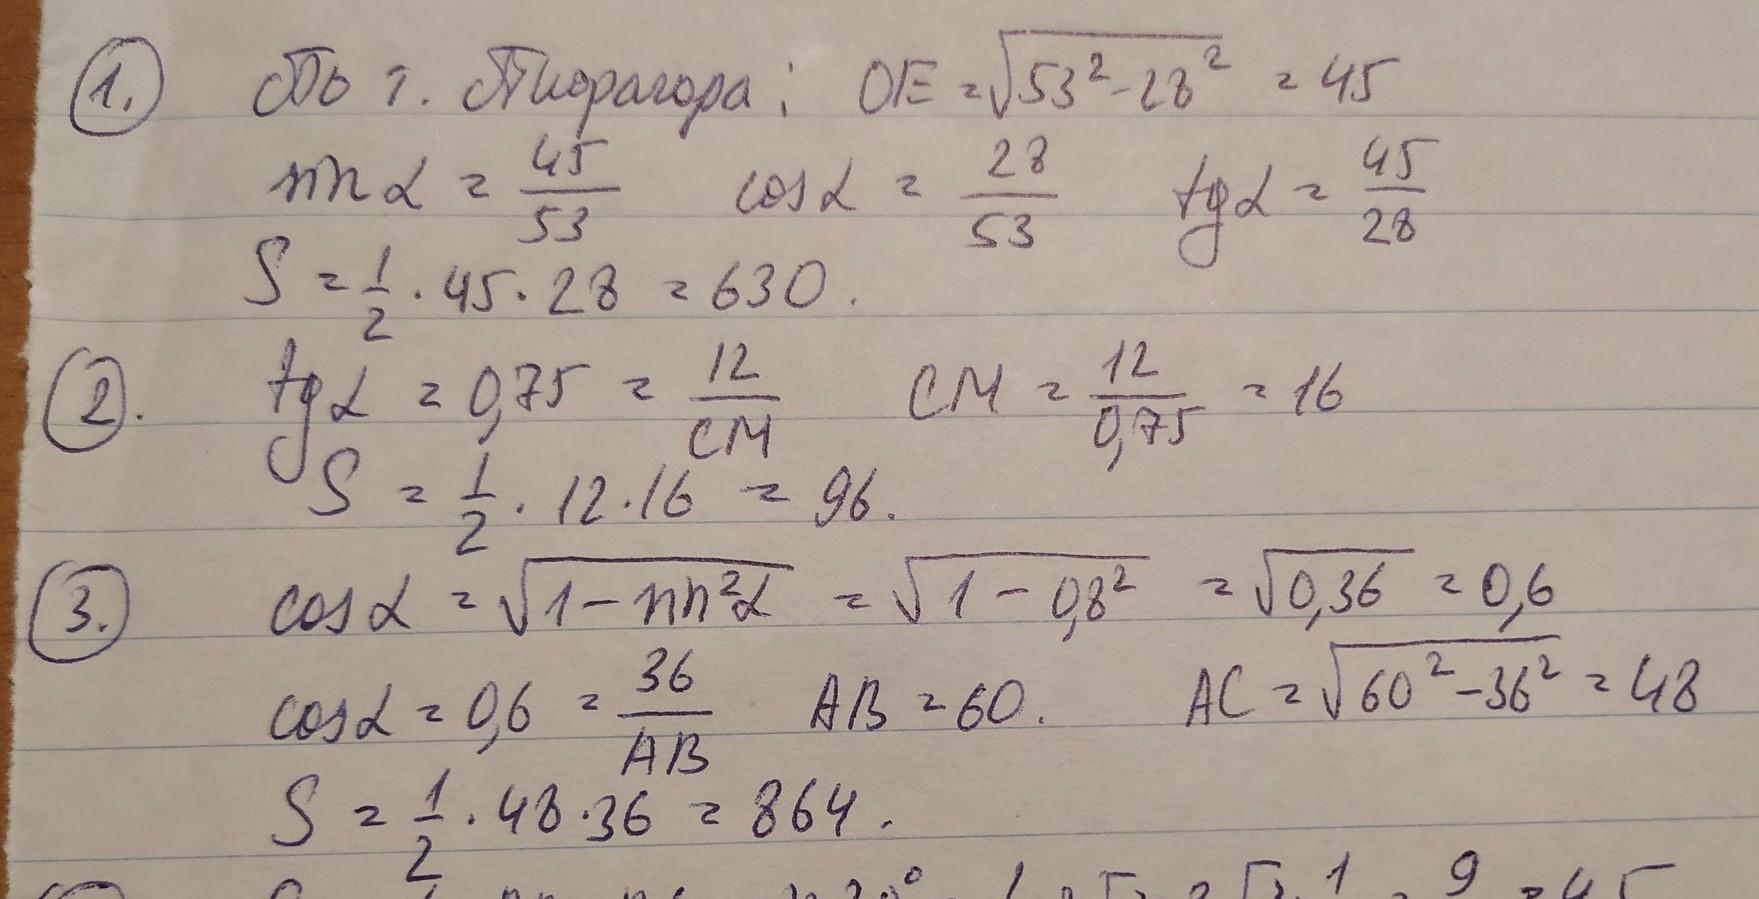 1. По т. Пифагора: OE = √(53² - 28²) = 45
sin α = 45/53 cos α = 28/53 tg α = 45/28
S = 1/2 · 45 · 28 = 630.
2. tg α = 0,75 = 12/CM CM = 12/0,75 = 16
S = 1/2 · 12 · 16 = 96.
3. cos α = √(1 - sin²α) = √(1 - 0,8²) = √0,36 = 0,6
cos α = 0,6 = 36/AB AB = 60. AC = √(60² - 36²) = 48
S = 1/2 · 48 · 36 = 864.